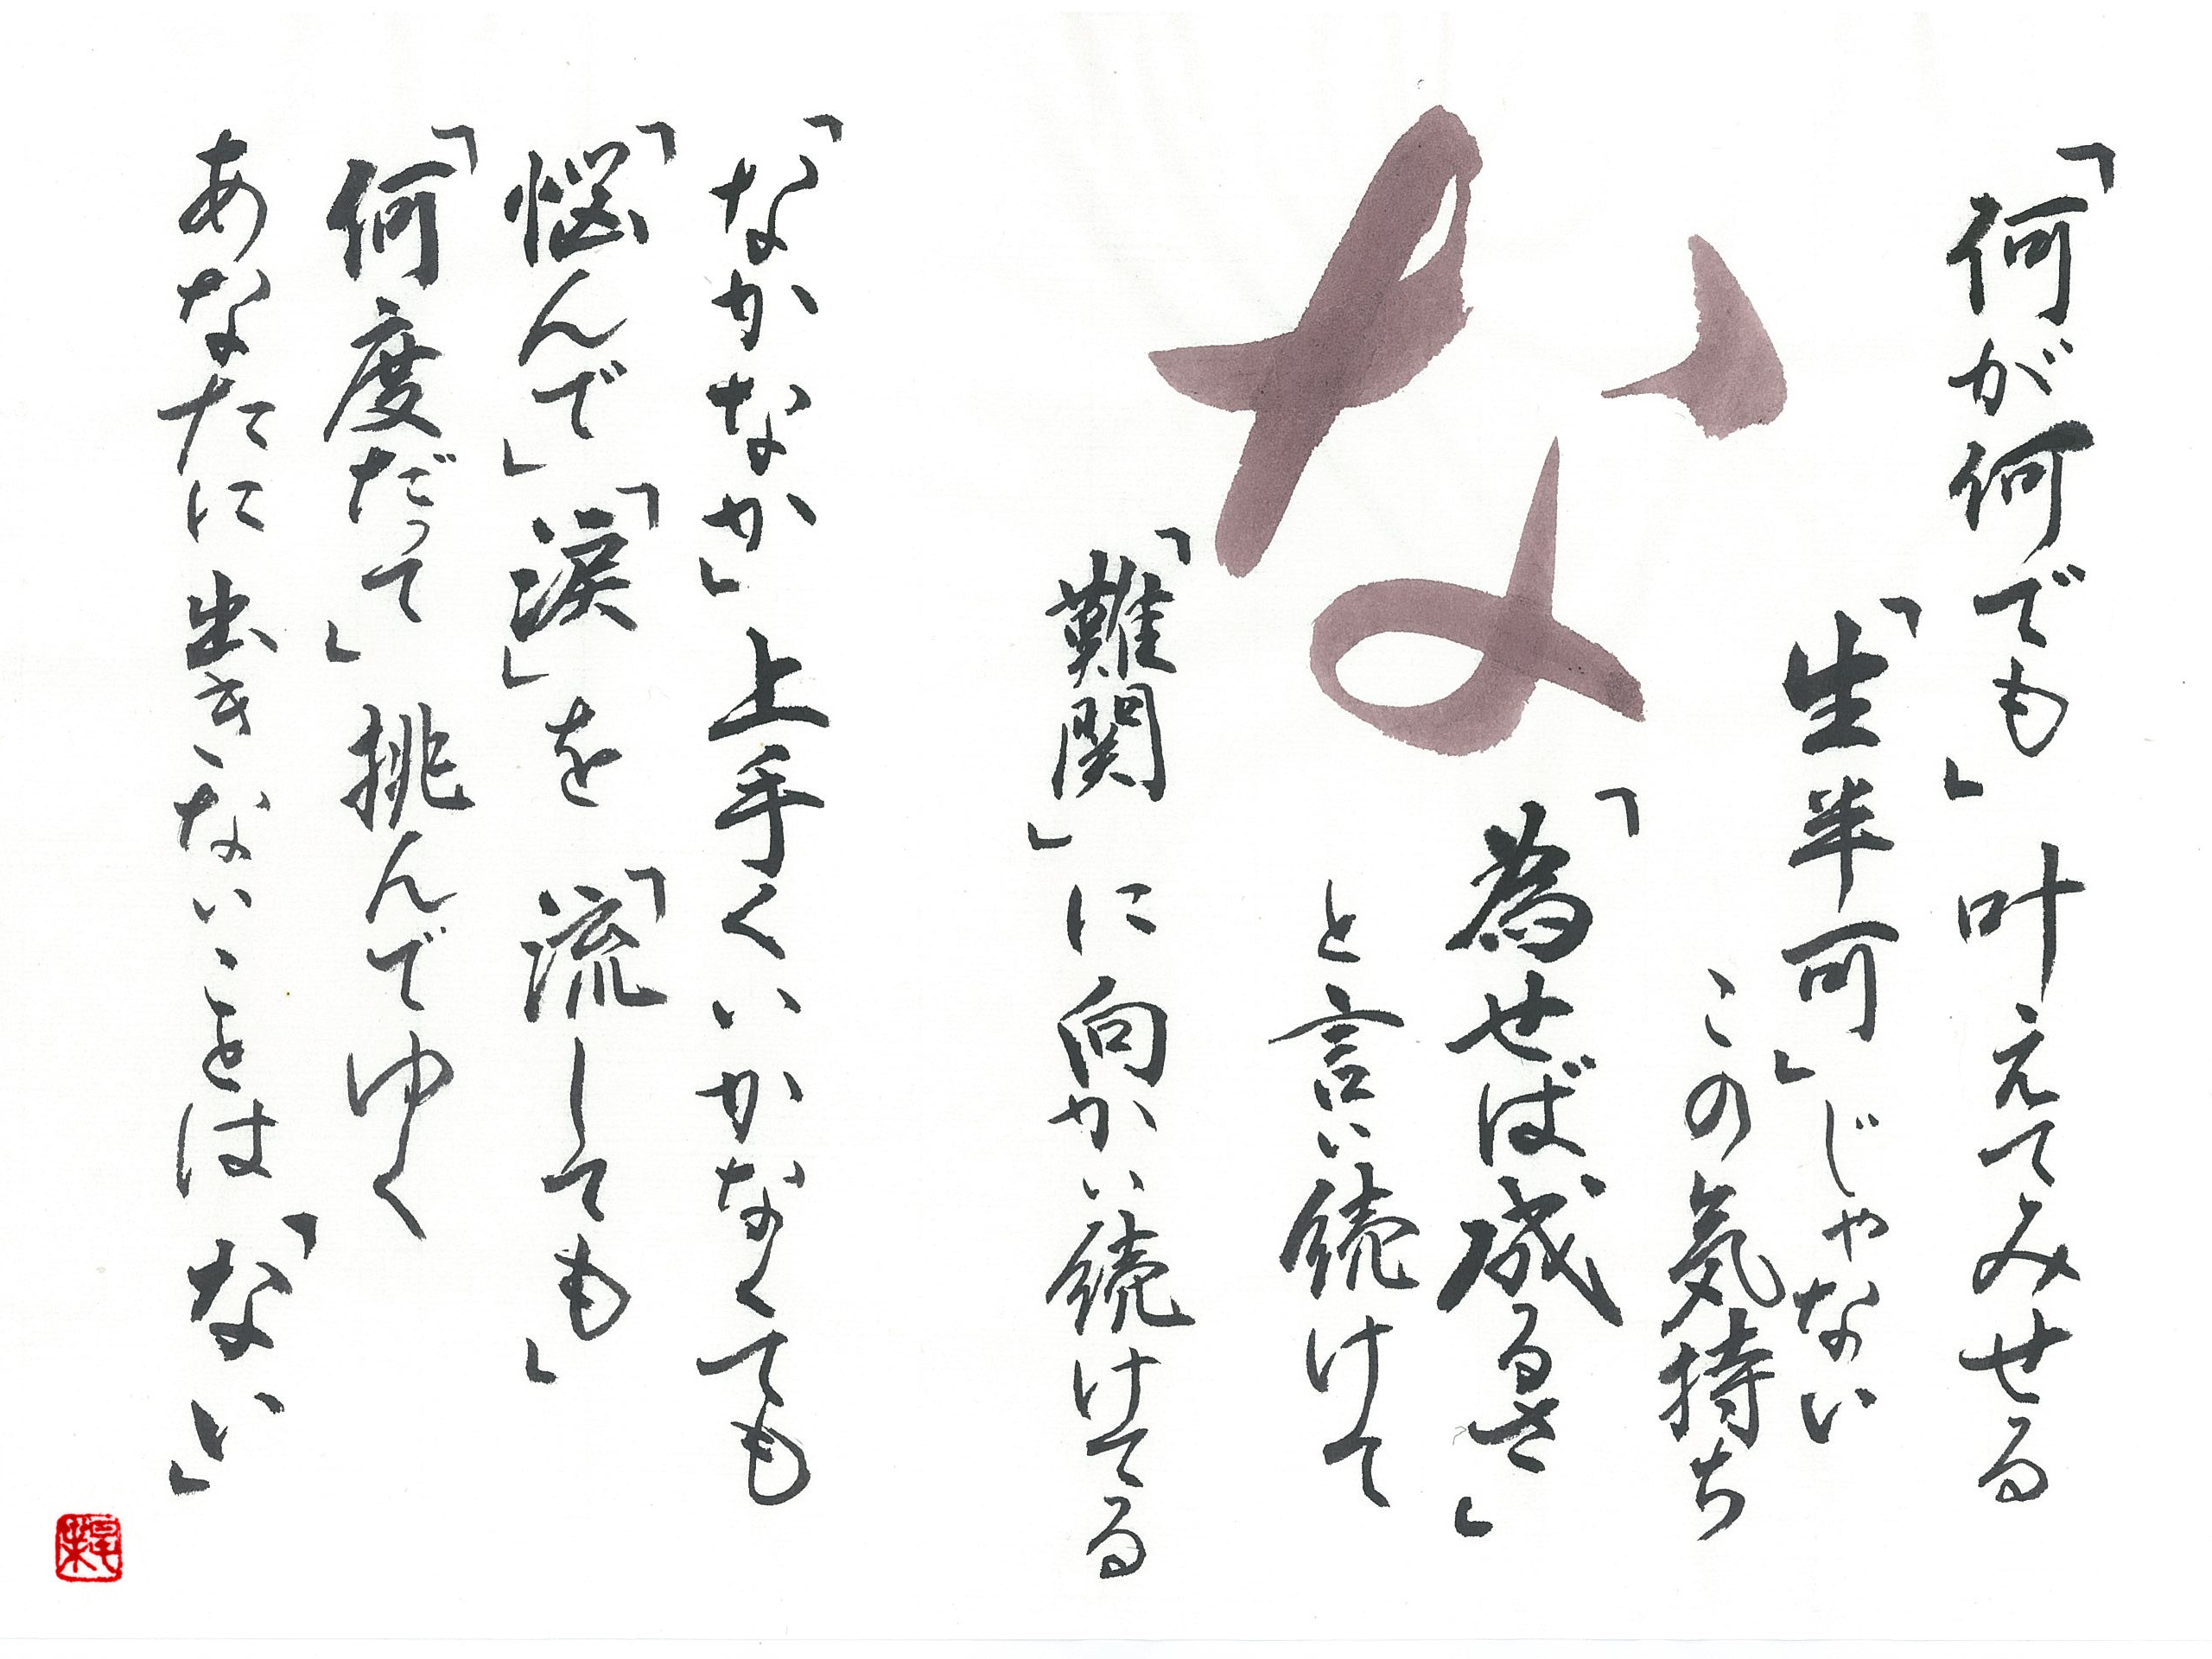 「何が何でも」叶えてみせる
「生半可」じゃない
この気持ち
な
「為せば成るさ」
と言い続けて
「難関」に向かい続けてる
「なかなか」上手くいかなくても
「悩んで」「涙」を「流しても」
「何度だって」挑んでゆく
あなたに出きないことは「ない」